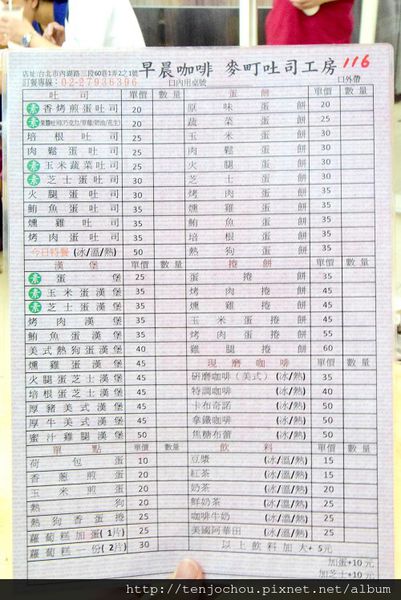 店址:台北市內湖路三段60巷1弄2之1號
訂餐專線：02-27936396
早晨咖啡 麥町吐司工房 116
口內用桌號
口外帶
吐司 單價 數量
素 香烤煎蛋吐司 20
素 果醬吐司(巧克力/草莓/奶油/花生) 20
培根吐司 25
肉鬆蛋吐司 25
素 玉米蔬菜吐司 25
素 芝士蛋吐司 30
火腿蛋吐司 30
鮪魚蛋吐司 35
燻雞吐司 35
烤肉蛋吐司 35
今日特餐 (冰/溫/熱) 50
蛋餅 單價 數量
原味蛋餅 20
蔬菜蛋餅 25
玉米蛋餅 30
肉鬆蛋餅 30
火腿蛋餅 30
芝士蛋餅 30
烤肉蛋餅 35
燻雞蛋餅 35
鮪魚蛋餅 35
培根蛋餅 35
熱狗蛋餅 35
漢堡 單價 數量
素 蛋漢堡 25
素 玉米蛋漢堡 35
素 芝士蛋漢堡 35
烤肉漢堡 35
鮪魚蛋漢堡 35
美式熱狗蛋漢堡 40
燻雞蛋漢堡 45
火腿蛋芝士漢堡 45
培根蛋芝士漢堡 45
厚豬美式漢堡 50
厚牛美式漢堡 50
蜜汁雞腿漢堡 50
捲餅 單價 數量
蛋捲餅 35
烤肉捲餅 45
燻雞捲餅 45
玉米蛋捲餅 45
烤肉蛋捲餅 55
雞腿捲餅 60
現磨咖啡 單價 數量
研磨咖啡(美式) (冰/熱) 35
特調咖啡 (冰/熱) 40
卡布奇諾 (冰/熱) 50
拿鐵咖啡 (冰/熱) 50
焦糖布蕾 (冰/熱) 50
單點 單價 數量
荷包蛋 10
香蔥煎蛋 20
玉米煎蛋 20
熱狗 20
熱狗香蛋捲 25
蘿蔔糕加蛋(1片) 25
蘿蔔糕一份(2片) 30
飲料 單價 數量
豆漿 (冰/溫/熱) 15
紅茶 (冰/溫/熱) 15
奶茶 (冰/溫/熱) 20
鮮奶茶 (冰/溫/熱) 25
咖啡牛奶 (冰/溫/熱) 25
美國阿華田 (冰/溫/熱) 25
以上飲料加大+5元
加蛋+10元
加芝士+10元
http://tenjochou.pixnet.net/album